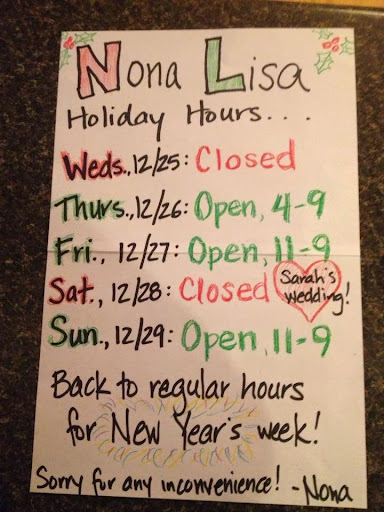 Nona Lisa
Holiday Hours....
Weds., 12/25: Closed
Thurs., 12/26: Open, 4-9
Fri., 12/27: Open, 11-9
Sat., 12/28: Closed
Sarah's
Wedding!
Sun., 12/29: Open, 11-9
Back to regular hours
for New Year's week!
Sorry for any inconvenience! -Nona